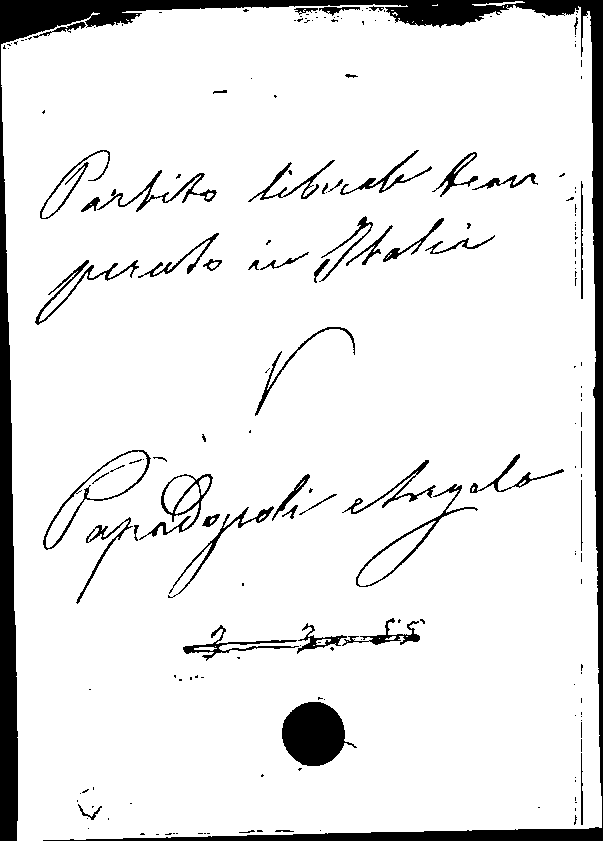 Partito liberale tem-
perato in Italia
V
Papadopoli Angelo
3 3 55